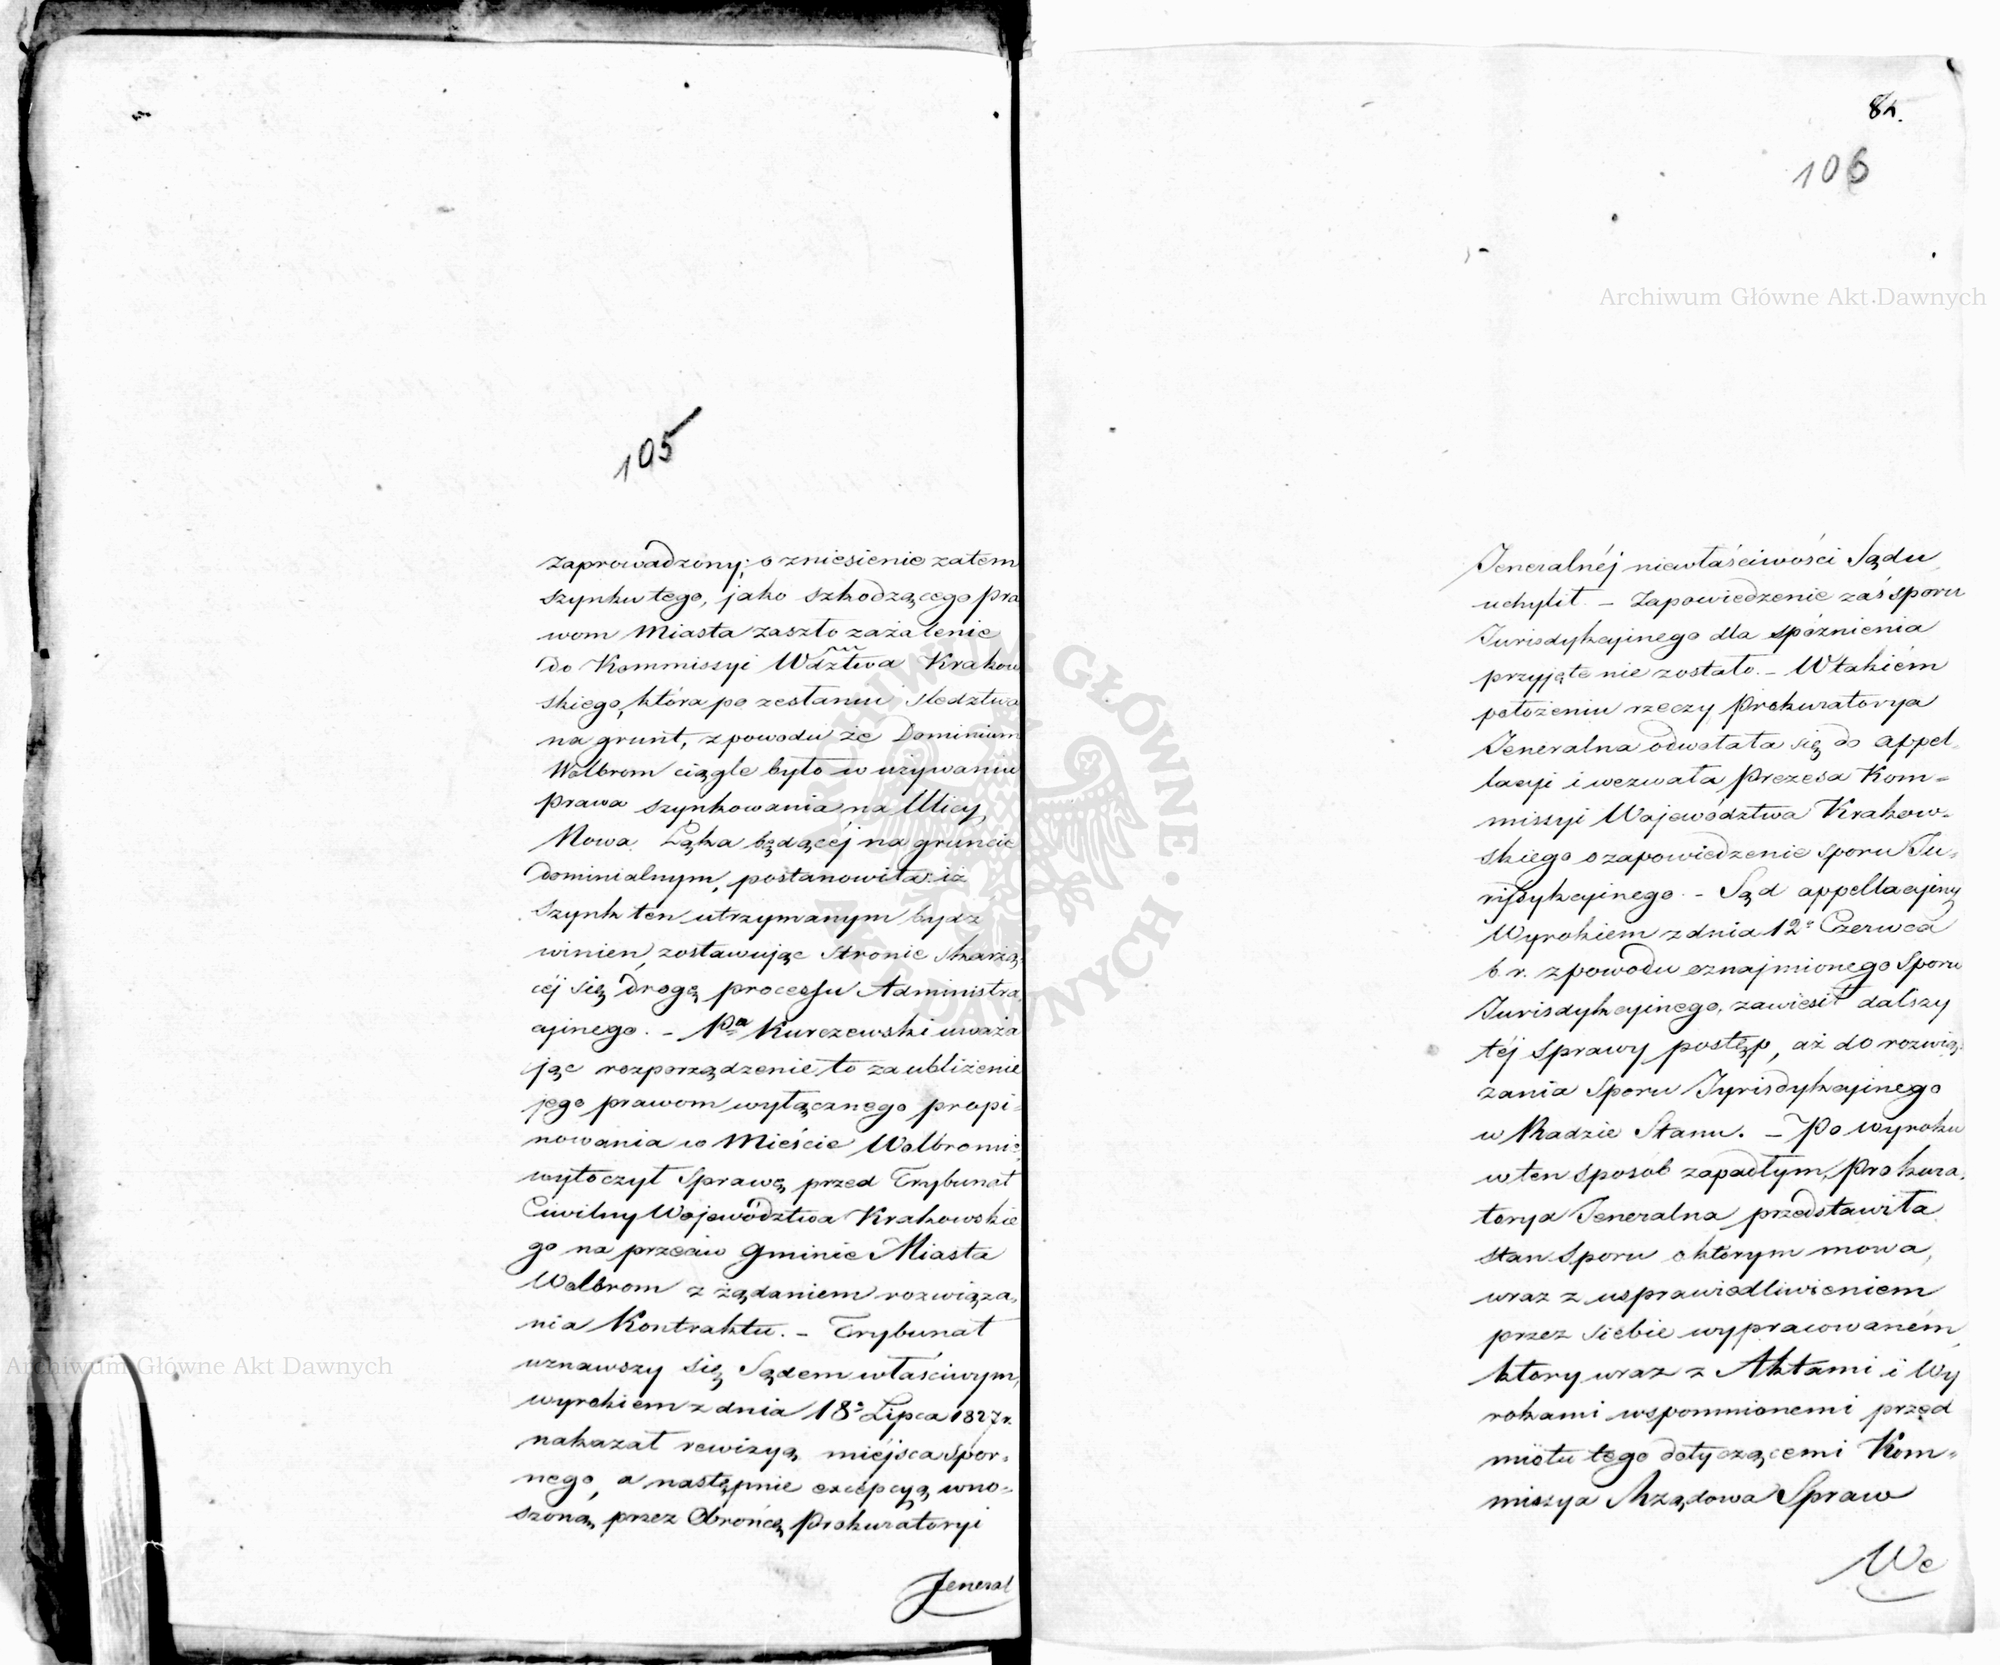 105
zaprowadzony; o zniesienie zatem
szynku tego, jako szkodzącego pra
wom Miasta zaszło zażalenie
do Kommissyi Wdztwa Krakow
skiego, która po zesłaniu śledztwa
na grunt, z powodu że Dominium
Wolbrom ciągle było w używaniu
prawa szynkowania na Ulicy
Nowa Łąka będącéj na gruncie
dominialnym, postanowiła: iż
szynk ten utrzymanym bydź
winien, zostawując stronie skarżą
céj się drogę processu Administra
cyinego. – Pn Kurczewski uważa
jąc rozporządzenie to za ubliżenie
jego prawom wyłącznego propi-
nowania w Mieście Wolbromie,
wytoczył Sprawę przed Trybunał
Ciwilny Województwa Krakowskie
go na przeciw Gminie Miasta
Wolbrom z żądaniem rozwiąza,
nia Kontraktu. – Trybunał
uznawszy się Sądem właściwym,
wyrokiem z dnia 18º Lipca 1827 r.
nakazał rewizyą miéjsca spor-
nego, a następnie excepcyą wno-
szoną przez Obrońcę Prokuratoryi
Jeneral
84.
106
Jeneralnéj niewłaściwości Sądu
uchylił. – Zapowiedzenie zaś sporu
Jurisdykcyinego dla spóznienia
przyjęte nie zostało. – W takiém
położeniu rzeczy Prokuratorya
Jeneralna odwołała się do appel-
lacyi i wezwała Prezesa Kom-
missyi Województwa Krakow-
skiego o zapowiedzenie sporu Ju-
risdykcyinego. – Sąd appellacyiny
Wyrokiem z dnia 12º Czerwca
b. r. z powodu oznajmionego Sporu
Jurisdykcyinego, zawiesił dalszy
téj sprawy postęp, aż do rozwią-
zania Sporu Jyrisdykcyinego
w Radzie Stanu. – Po wyroku
w ten sposób zapadłym, Prokura-
torya Jeneralna przedstawiła
stan Sporu o którym mowa,
wraz z usprawiedliwieniem
przez siebie wypracowaném,
ktory wraz z Aktami i Wy
rokami wspomnionemi przed
miotu tego dotyczącemi Kom-
missya Rządowa Spraw
We
Archiwum Główne Akt Dawnych
Archiwum Główne Akt Dawnych
ARCHIWUM GŁÓWNE • AKT DAWNYCH •